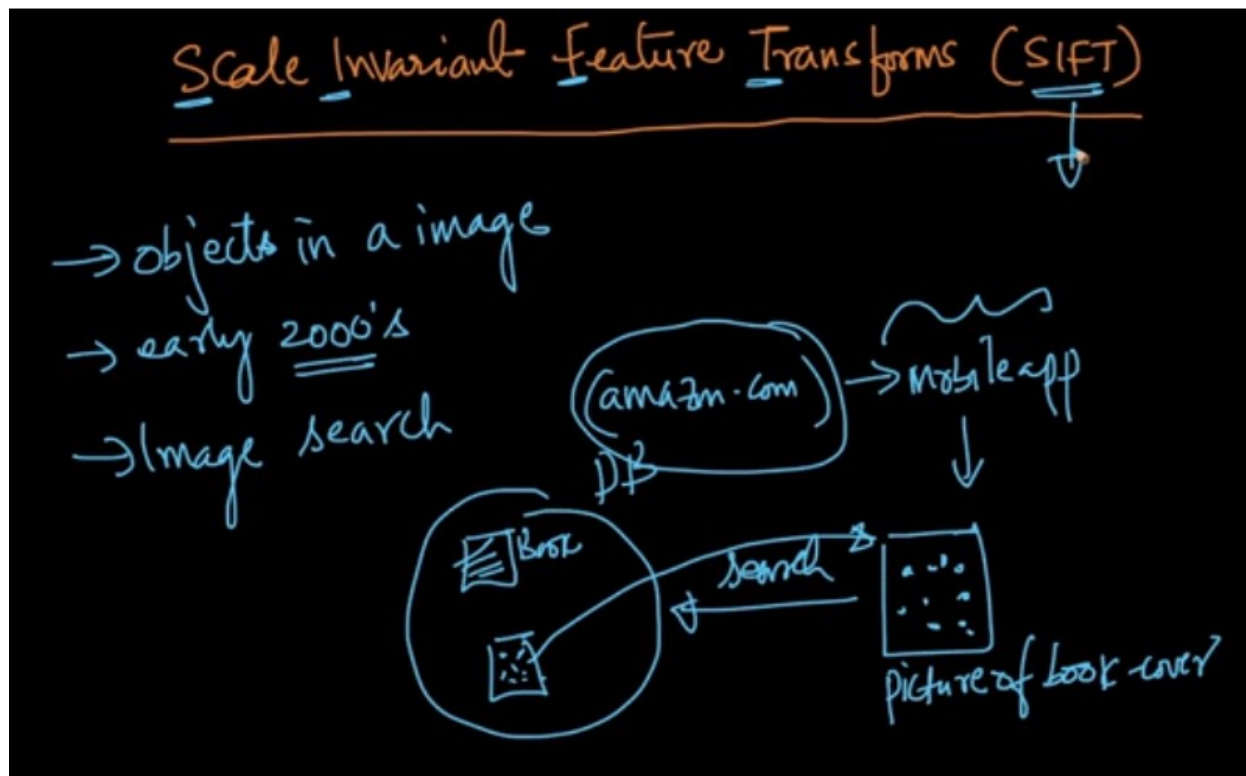 Scale Invariant Feature Transforms (SIFT)
→ objects in a image
→ early 2000's
→ Image search
(amazn.com) → mobile app
DB
Book
search
picture of book-cover